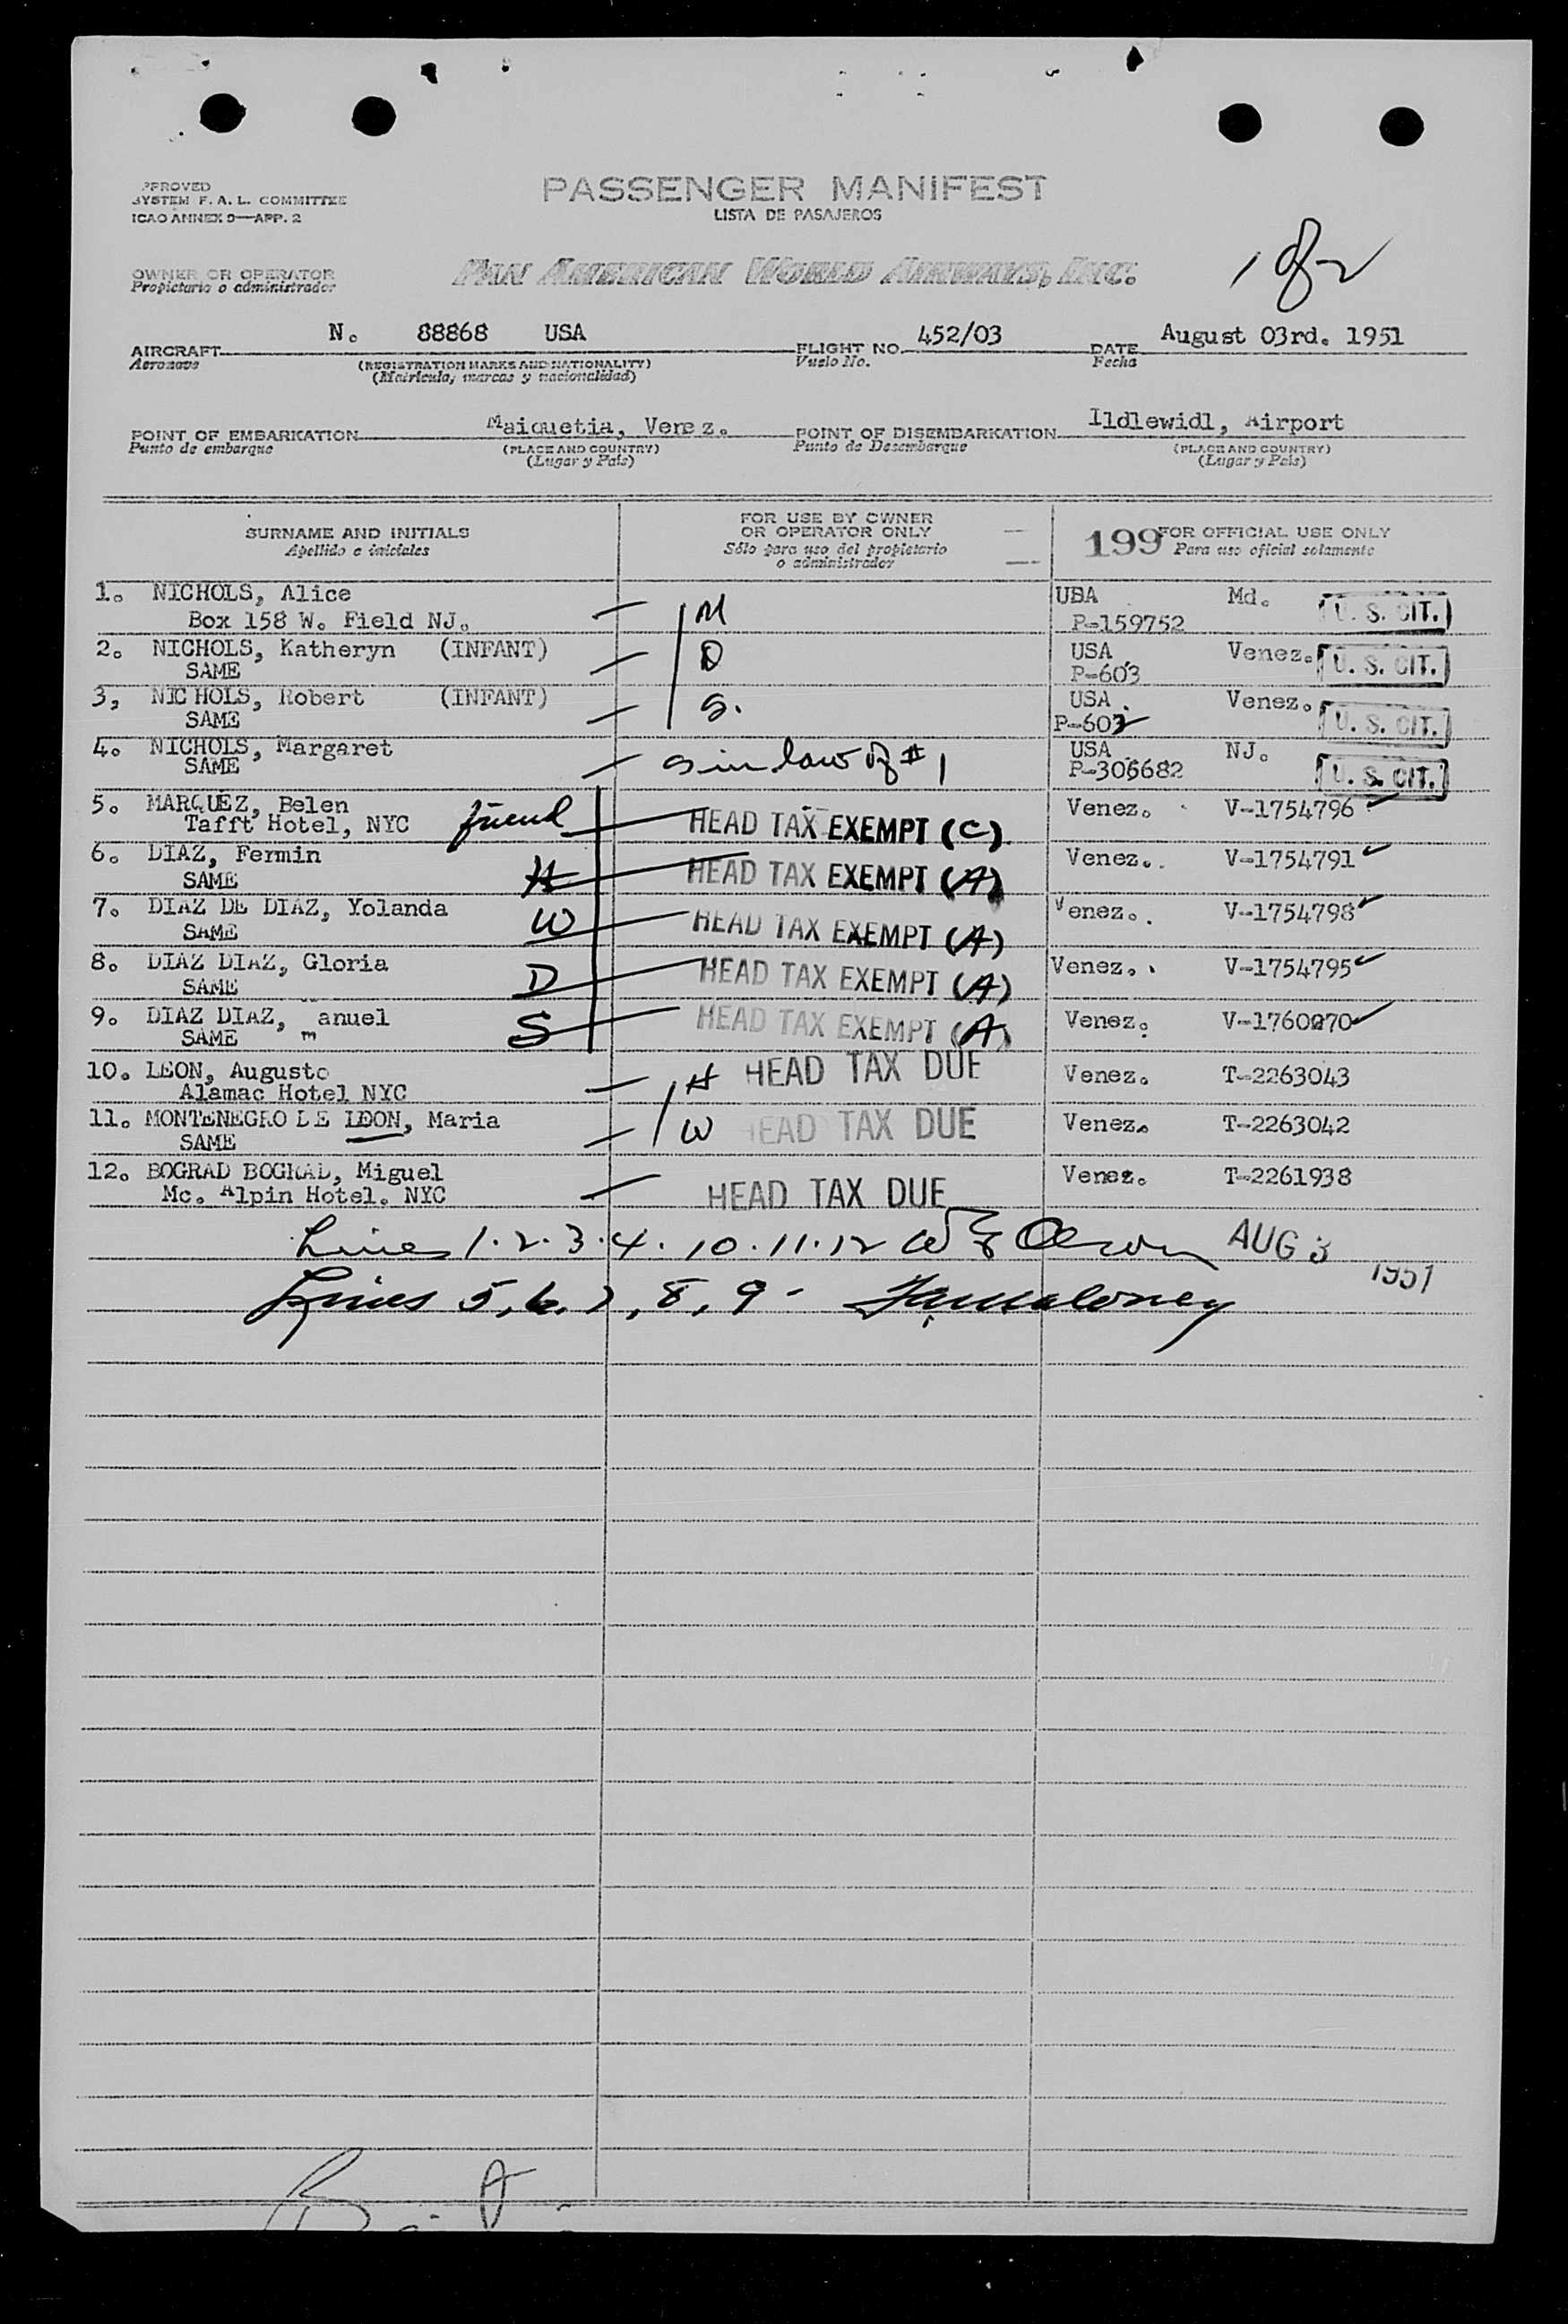 PASSENGER MANIFEST
LISTA DE PASAJEROS
PPROVED
SYSTEM F. A. L. COMMITTEE
ICAO ANNEX 9—APP. 2
1 of 2
OWNER OR OPERATOR
Propietario o administrador
PAN AMERICAN WORLD AIRWAYS, INC.
AIRCRAFT N. 88868 USA FLIGHT NO. 452/03 DATE August 03rd. 1951
Aeronave (REGISTRATION MARKS AND NATIONALITY) Vuelo No. Fecha
(Matricula, marcas y nacionalidad)
POINT OF EMBARKATION Maiquetia, Venez. POINT OF DISEMBARKATION Ildlewidl, Airport
Punto de embarque (PLACE AND COUNTRY) Punto de Desembarque (PLACE AND COUNTRY)
(Lugar y Pais) (Lugar y Pais)
SURNAME AND INITIALS FOR USE BY OWNER OR OPERATOR ONLY 199 FOR OFFICIAL USE ONLY
Apellido e iniciales Sólo para uso del propietario o administrador Para uso oficial solamente
1. NICHOLS, Alice M USA Md. U. S. CIT.
Box 158 W. Field NJ. P-159752
2. NICHOLS, Katheryn (INFANT) D USA Venez. U. S. CIT.
SAME P-603
3, NIC HOLS, Robert (INFANT) S. USA Venez. U. S. CIT.
SAME P-602
4. NICHOLS, Margaret s in law of #1 USA NJ. U. S. CIT.
SAME P-306682
5. MARQUEZ, Belen friend HEAD TAX EXEMPT (C) Venez. V-1754796
Tafft Hotel, NYC
6. DIAZ, Fermin H HEAD TAX EXEMPT (A) Venez. V-1754791
SAME
7. DIAZ DE DIAZ, Yolanda W HEAD TAX EXEMPT (A) Venez. V-1754798
SAME
8. DIAZ DIAZ, Gloria D HEAD TAX EXEMPT (A) Venez. V-1754795
SAME
9. DIAZ DIAZ, manuel S HEAD TAX EXEMPT (A) Venez. V-1760070
SAME
10. LEON, Augusto H HEAD TAX DUE Venez. T-2263043
Alamac Hotel NYC
11. MONTENEGRO DE LEON, Maria W HEAD TAX DUE Venez. T-2263042
SAME
12. BOGRAD BOGRAD, Miguel HEAD TAX DUE Venez. T-2261938
Mc. Alpin Hotel. NYC
Lines 1.2.3.4.10.11.12 AUG 3 1951
Lines 5, 6, 7, 8, 9-